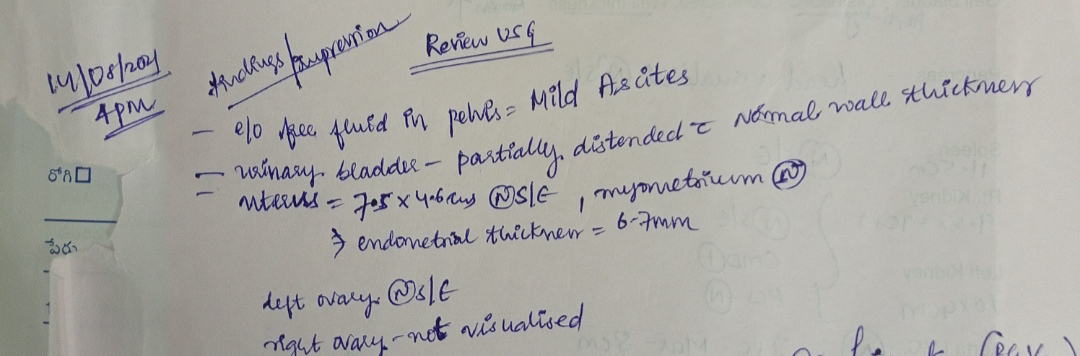 Review USG
14/08/2021
4pm
findings/Impression
- e/o free fluid in pelvis = Mild Ascites
- urinary bladder - partially distended c Normal wall thickness
= uterus = 7.5 x 4.6 cms (N) S/E, myometrium (N)
→ endometrial thickness = 6.7mm
left ovary (N) S/E
right ovary - not visualised